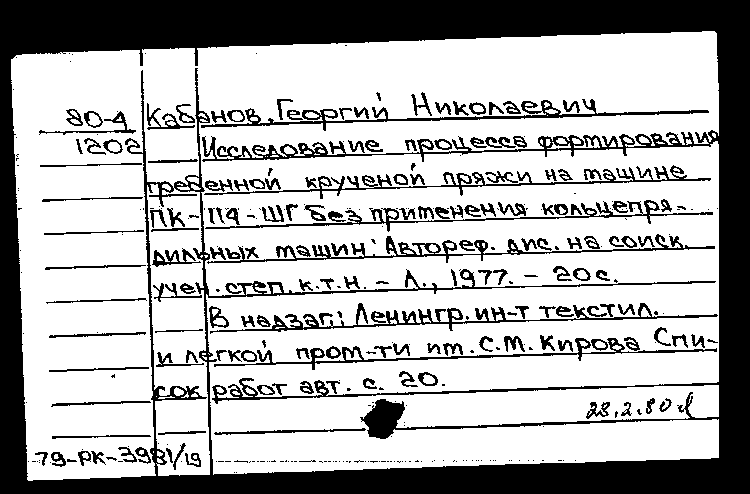 80-4 Кабанов, Георгий Николаевич
1202 Исследование процесса формирования
гребенной крученой пряжи на машине
ПК-114-ШГ без применения кольцепря-
дильных машин: Автореф. дис. на соиск.
учен. степ. к.т.н. - Л., 1977. - 20 с.
В надзаг.: Ленингр. ин-т текстил.
и легкой пром-ти им. С.М. Кирова Спи-
сок работ авт. с. 20.
28.2.80
79-РК-3981/19